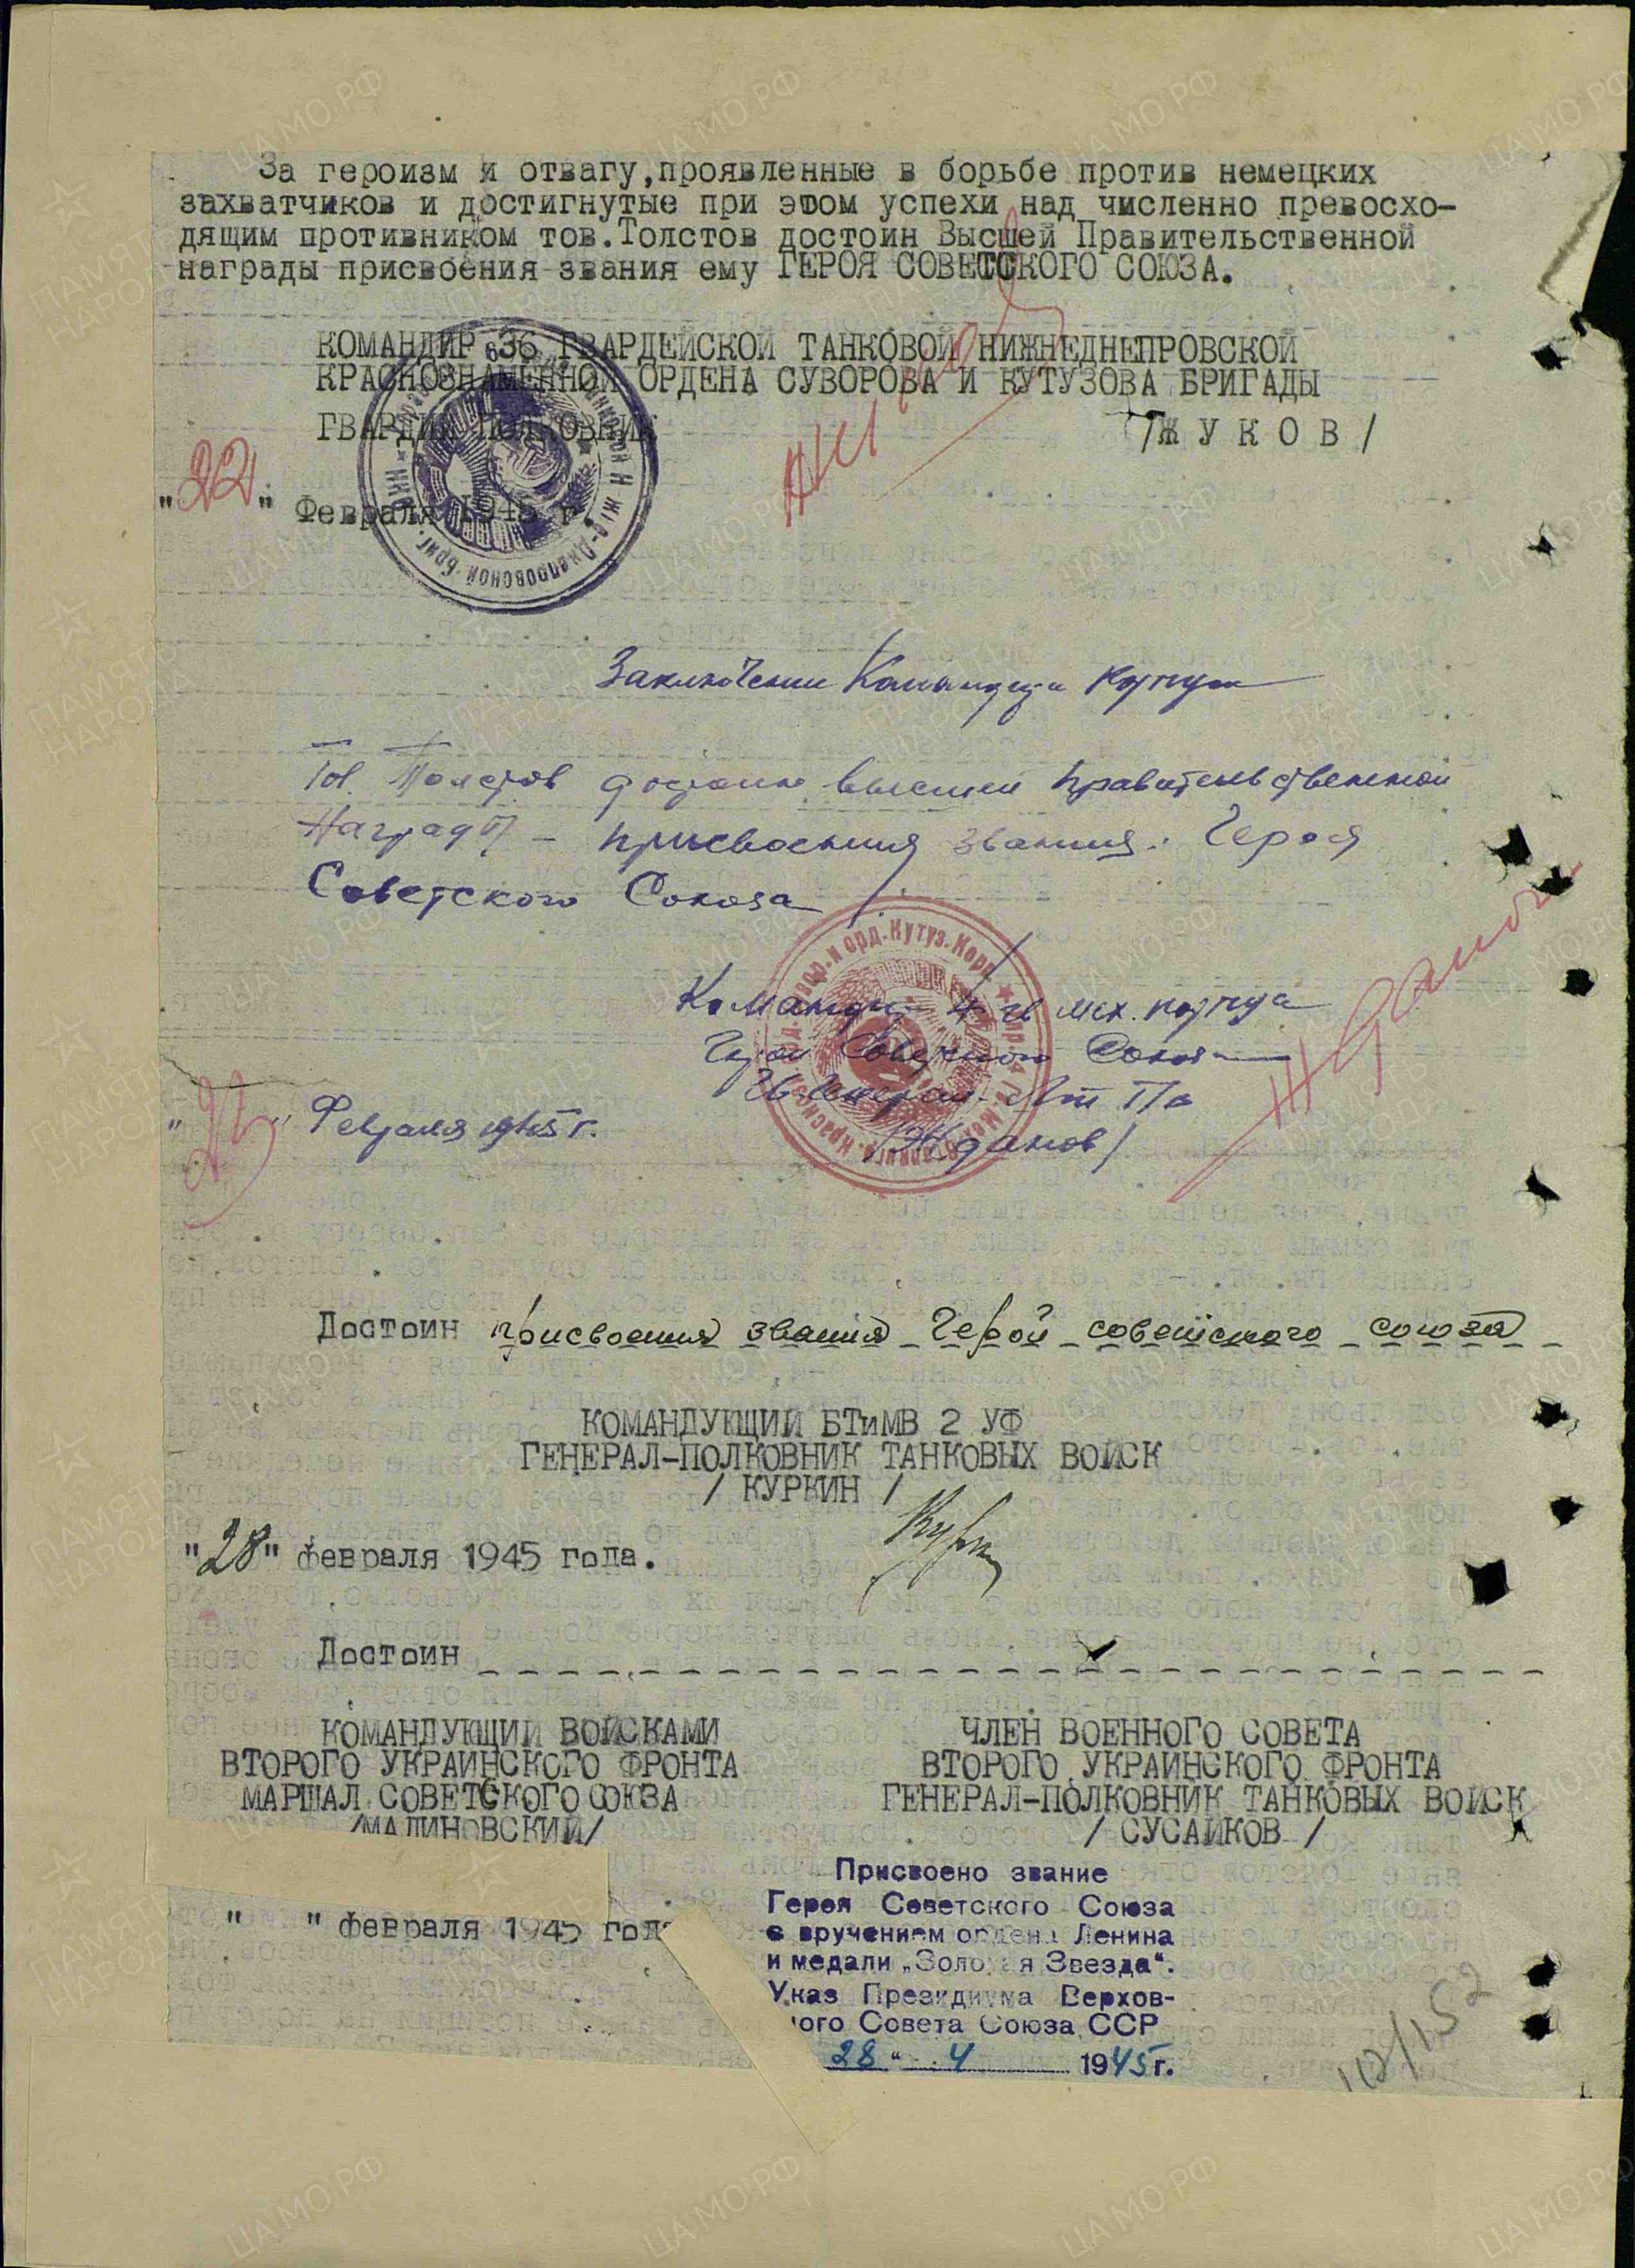 За героизм и отвагу,проявленные в борьбе против немецких
захватчиков и достигнутые при этом успехи над численно превосхо-
дящим противником тов.Толстов достоин Высшей Правительственной
награды присвоения звания ему ГЕРОЯ СОВЕТСКОГО СОЮЗА.
КОМАНДИР 36 ГВАРДЕЙСКОЙ ТАНКОВОЙ НИЖНЕДНЕПРОВСКОЙ
КРАСНОЗНАМЕННОЙ ОРДЕНА СУВОРОВА И КУТУЗОВА БРИГАДЫ
ГВАРДИИ ПОЛКОВНИК
/Ж У К О В/
"22" Февраля 1945 г.
Заключение Командира корпуса
Тов. Толстов достоин высшей правительственной
Награды - присвоения звания: Героя
Советского Союза
Командир 4 гв мех. корпуса
Герой Советского Союза
Гв Генерал-Лт Т/в
/Жданов/
Жданов
"23" Февраля 1945 г.
Достоин присвоения звания Герой советского союза
КОМАНДУЮЩИЙ БТиМВ 2 УФ
ГЕНЕРАЛ-ПОЛКОВНИК ТАНКОВЫХ ВОЙСК
/ КУРКИН /
"28" февраля 1945 года.
Достоин
КОМАНДУЮЩИЙ ВОЙСКАМИ
ВТОРОГО УКРАИНСКОГО ФРОНТА
МАРШАЛ СОВЕТСКОГО СОЮЗА
/МАЛИНОВСКИЙ/
ЧЛЕН ВОЕННОГО СОВЕТА
ВТОРОГО УКРАИНСКОГО ФРОНТА
ГЕНЕРАЛ-ПОЛКОВНИК ТАНКОВЫХ ВОЙСК
/ СУСАЙКОВ /
" " февраля 1945 года
Присвоено звание
Героя Советского Союза
с вручением ордена Ленина
и медали „Золотая Звезда“.
Указ Президиума Верхов-
ного Совета Союза ССР
28 " 4 1945 г.